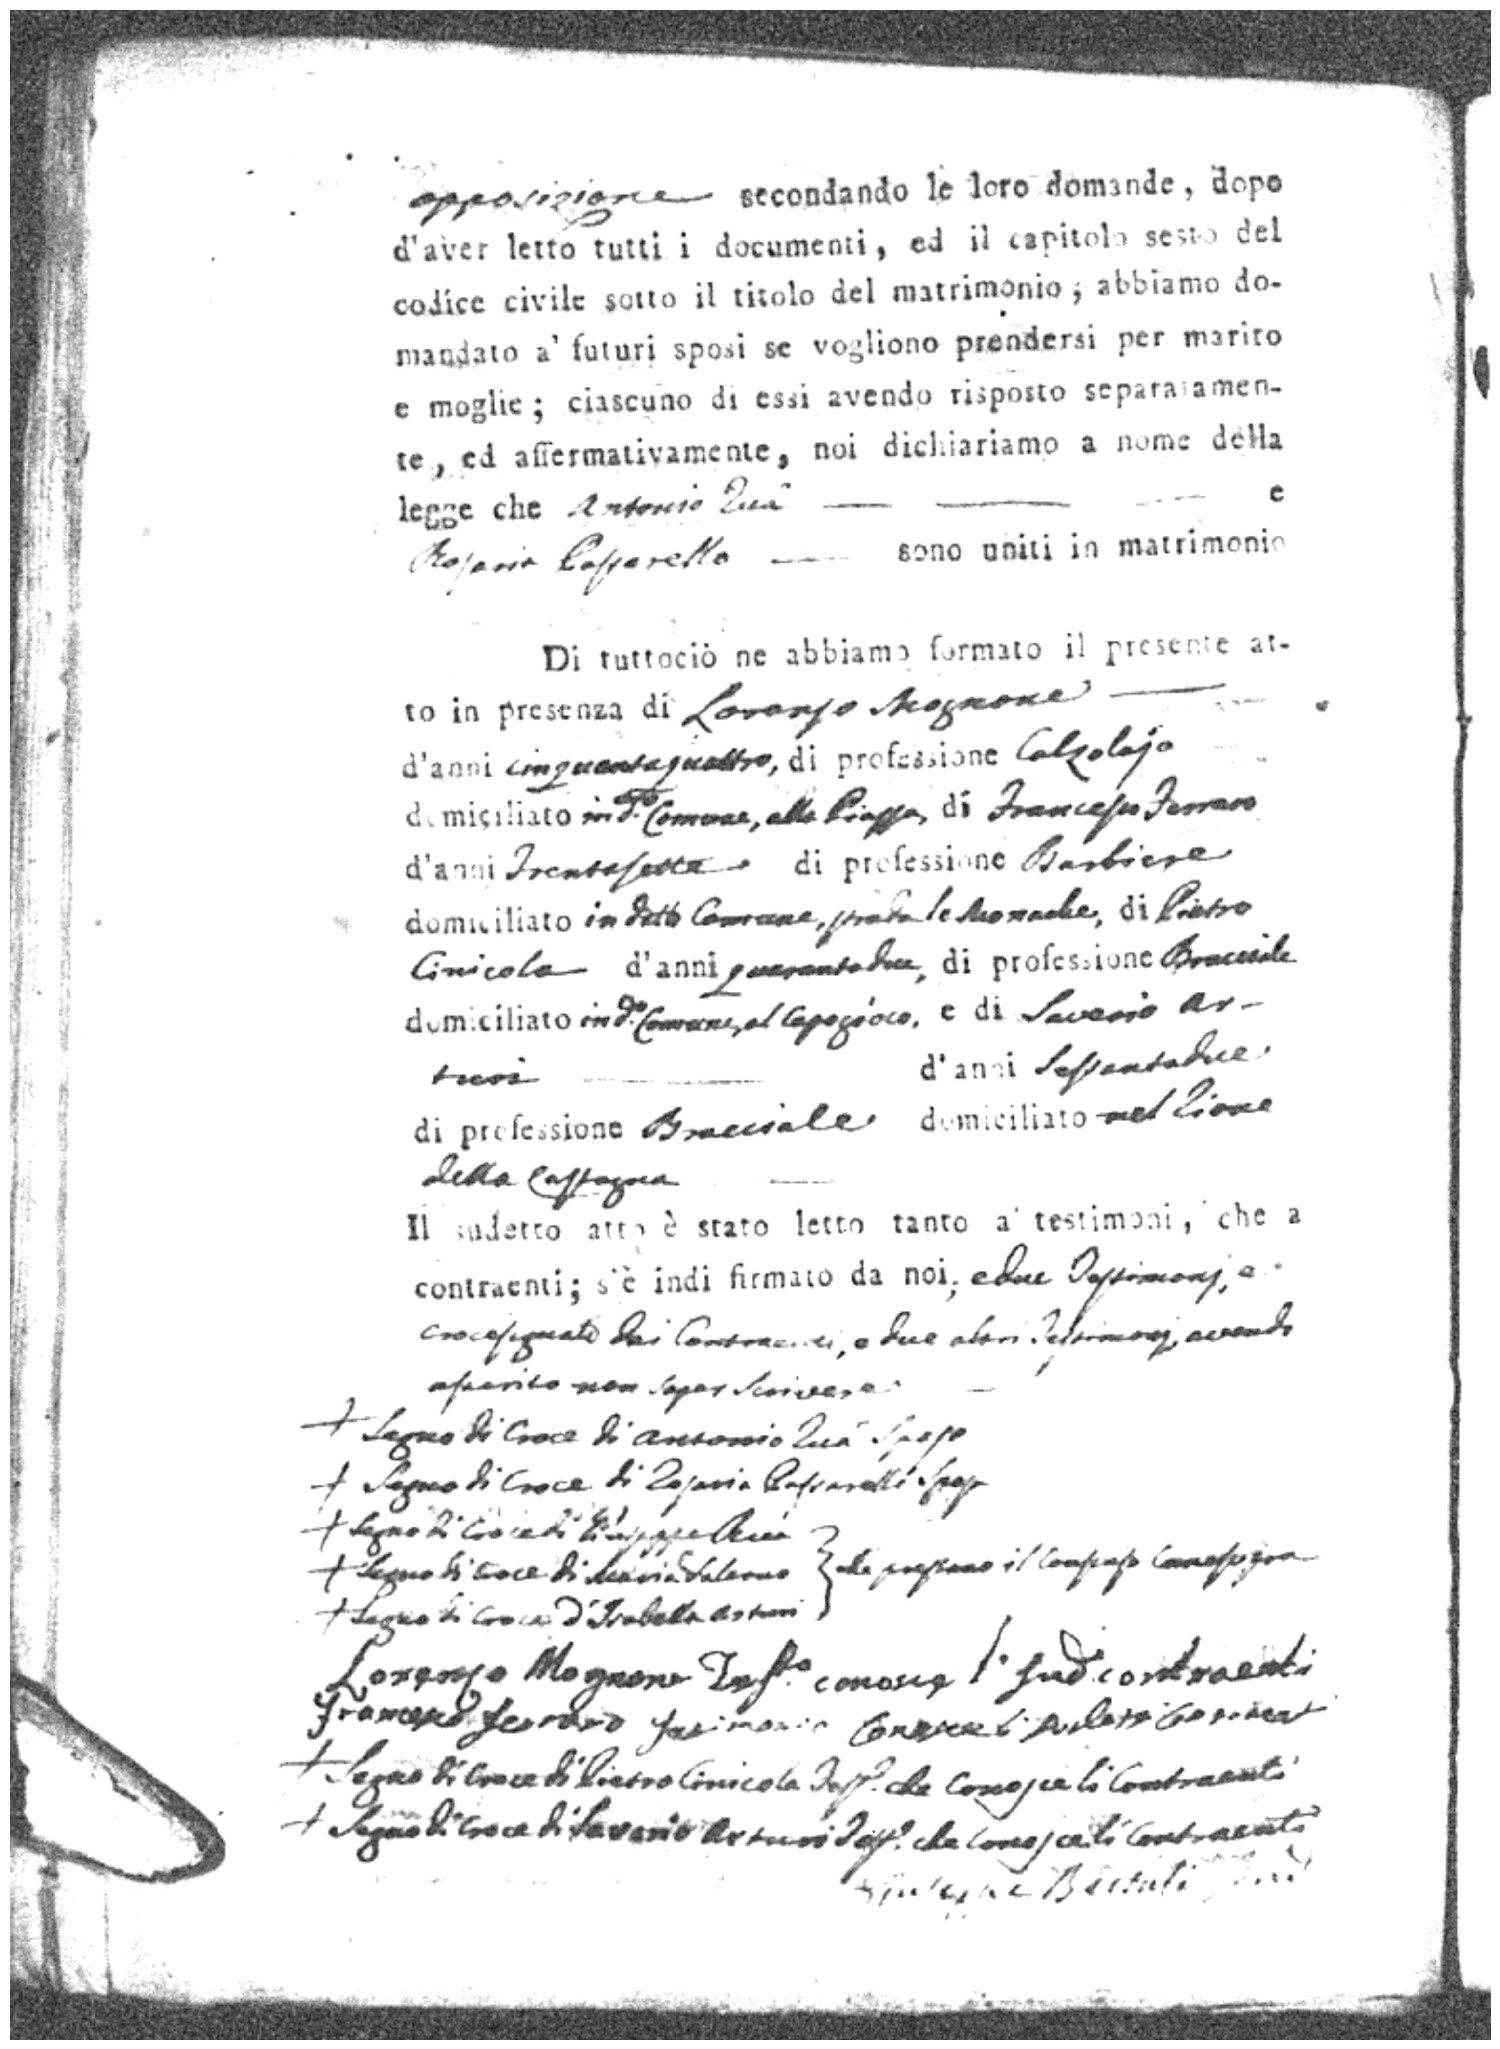 opposizione secondando le loro domande, dopo
d'aver letto tutti i documenti, ed il capitolo sesto del
codice civile sotto il titolo del matrimonio; abbiamo do-
mandato a' futuri sposi se vogliono prendersi per marito
e moglie; ciascuno di essi avendo risposto separatamen-
te, ed affermativamente, noi dichiariamo a nome della
legge che Antonio Ruà e
Rosaria Passarello sono uniti in matrimonio
Di tuttociò ne abbiamo formato il presente at-
to in presenza di Lorenzo Mognone
d'anni cinquantaquattro, di professione Calzolajo
domiciliato in d.º Comune, alla Piazza, di Francesco Ferraro
d'anni Trentasette di professione Barbiere
domiciliato in detto Comune, strada le Monache, di Pietro
Cinicola d'anni quarantadue, di professione Bracciale
domiciliato in d.º Comune, al Capogioco, e di Saverio Ar-
turi d'anni Sessantadue
di professione Bracciale domiciliato nel Rione
della Castagna
Il sudetto atto è stato letto tanto a' testimoni, che a
contraenti; s'è indi firmato da noi, e due Testimonj, e
crocesignato dai Contraenti, e due altri Testimonj, avendo
asserito non saper scrivere
+ Segno di Croce di Antonio Ruà Sposo
+ Segno di Croce di Rosaria Passarelli Sposa
+ Segno di Croce di Giuseppe Ruà
+ Segno di Croce di Maria Salerno } che prestano il Consenso Come sopra
+ Segno di Croce d'Isabella Arturi
Lorenzo Mognone Test.º conosce l' sud. contraenti
Francesco Ferraro testimonio Conosce li
+ Segno di Croce di Pietro Cinicola Test.º che Conosce li Contraenti
+ Segno di Croce di Saverio Arturi Test.º che Conosce li Contraenti